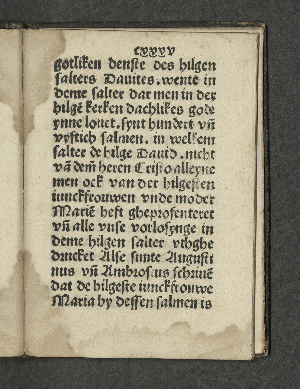 cxxxv
gotliken denste des hilgen
salters Dauites. wente in
deme salter dar men in der
hilgē kerken dachlikes gode
ynne louet. synt hundert vñ
vyftich salmen. in welkem
salter de hilge Dauid. nicht
vā dem̄ heren Cristo alleyne
men ock van der hilgesten
iunckfrouwen vnde moder
Mariē heft gheprofenteret
vñ alle vnse vorlosynge in
deme hilgen salter vthghe
drucket Alse sunte Augusti
nus vñ Ambrosius schriuē
dat de hilgeste iunckfrouwe
Maria by dessen salmen is